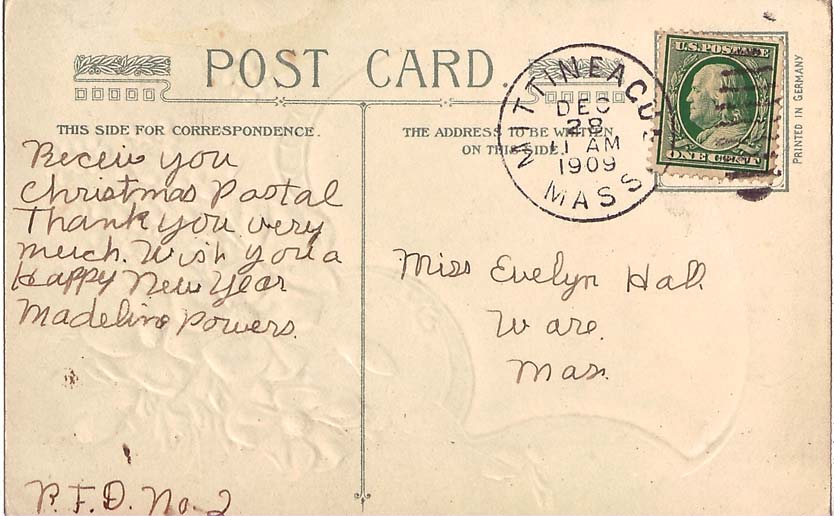 POST CARD
THIS SIDE FOR CORRESPONDENCE.
THE ADDRESS TO BE WRITTEN
ON THIS SIDE.
MITTINEAGUE
DEC
28
11 AM
1909
MASS
U.S. POSTAGE
ONE CENT
PRINTED IN GERMANY
Receiv you
Christmas Postal
Thank you very
much. Wish you a
Happy New Year
Madeline Powers.
Miss Evelyn Hall
Ware.
Mass.
R.F.D. No. 2